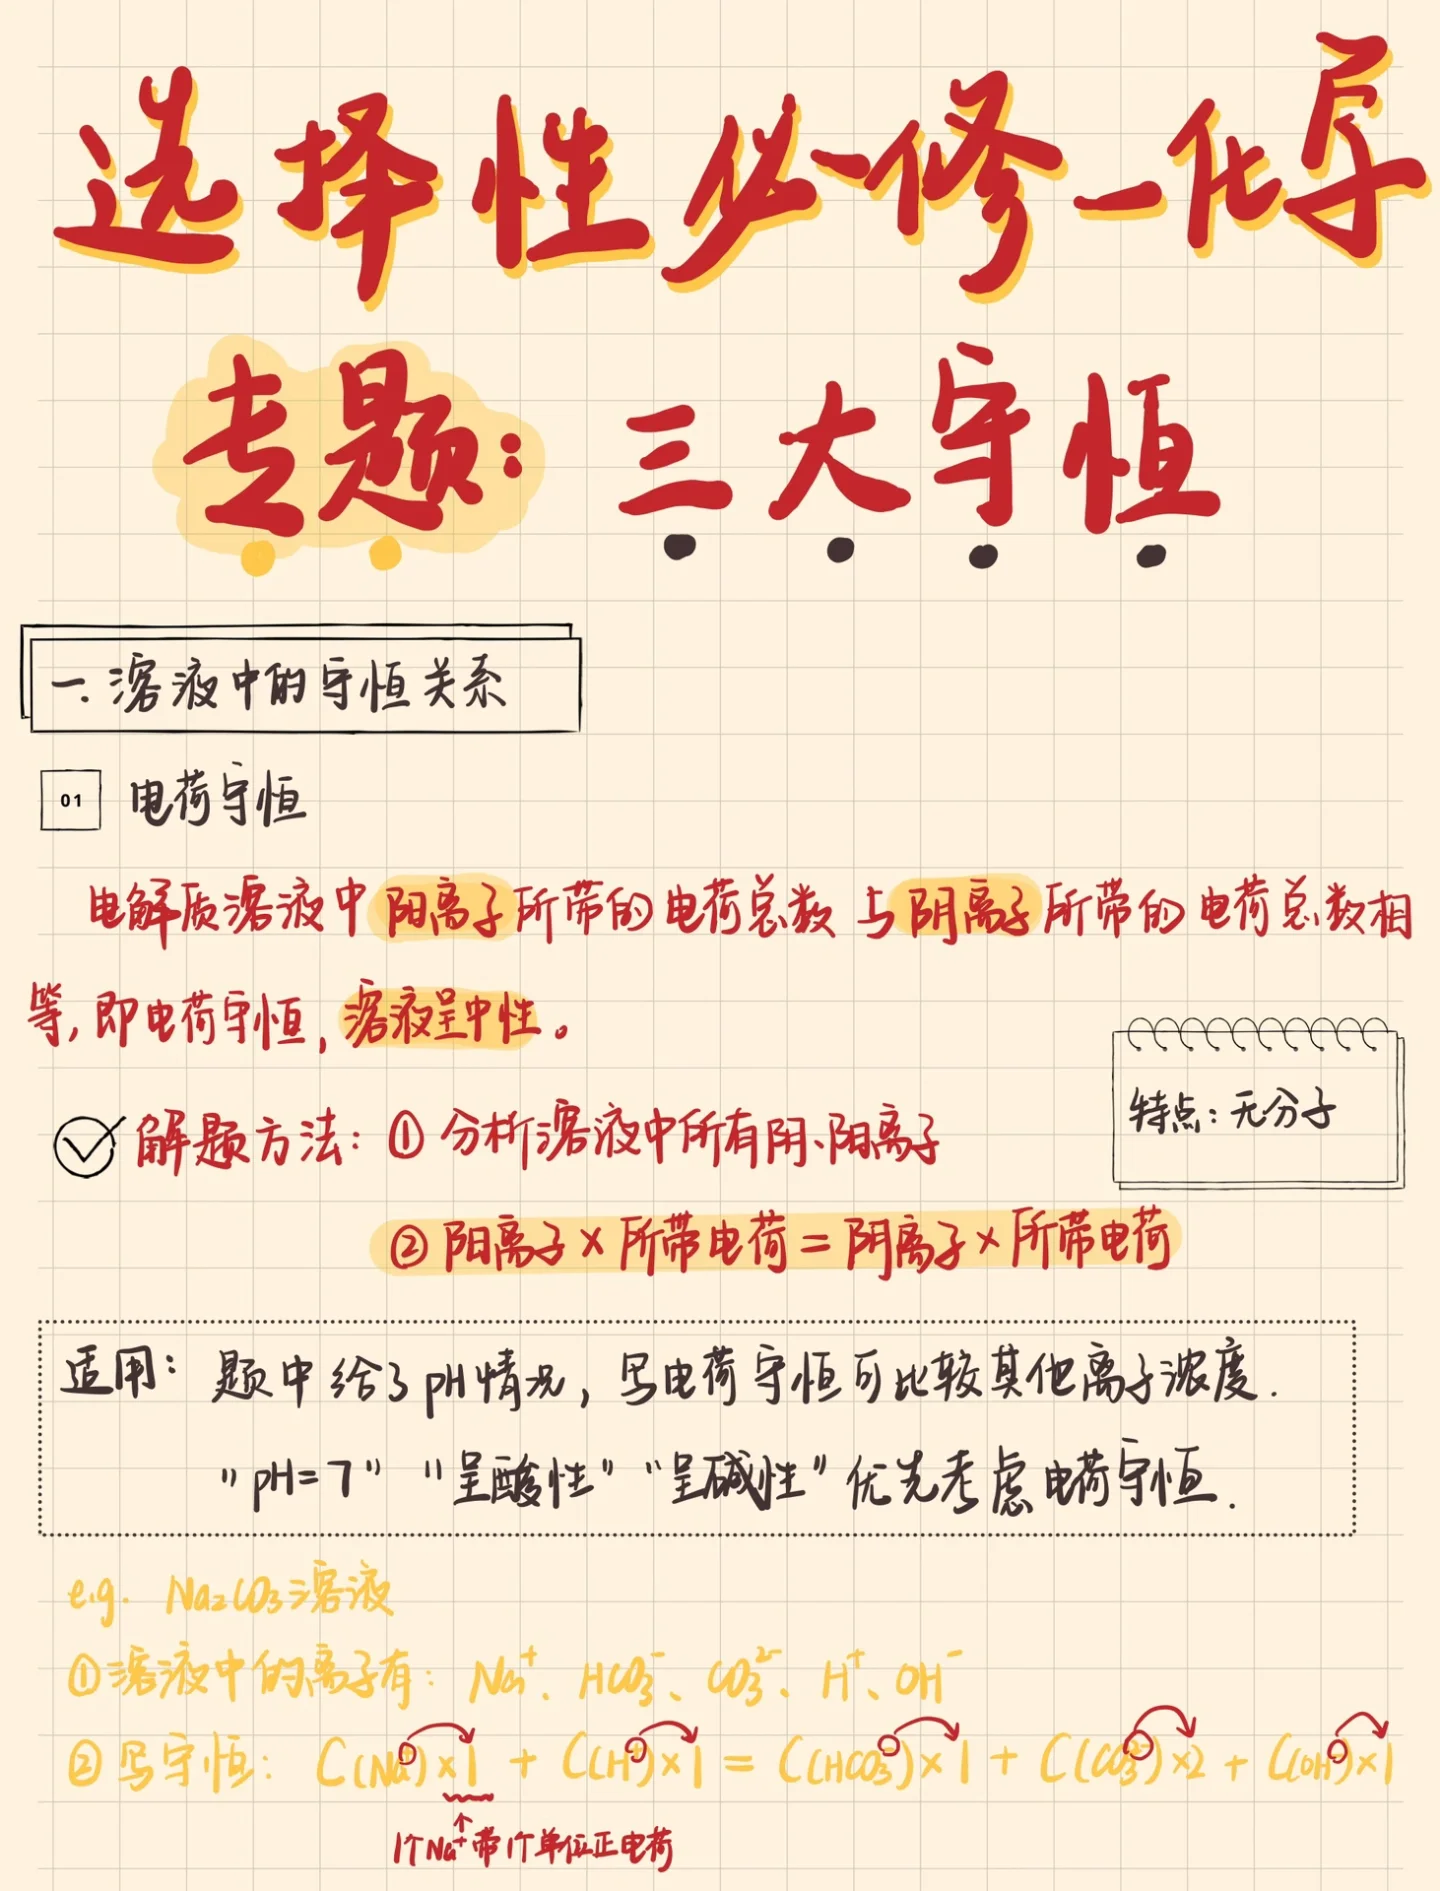 选择性必修一化学
专题：三大守恒
一.溶液中的守恒关系
01 电荷守恒
电解质溶液中阳离子所带的电荷总数与阴离子所带的电荷总数相
等，即电荷守恒，溶液呈中性。
特点：无分子
解题方法：① 分析溶液中所有阴、阳离子
② 阳离子×所带电荷=阴离子×所带电荷
适用：题中给了pH情况，写电荷守恒可比较其他离子浓度.
"pH=7" "呈酸性" "呈碱性" 优先考虑电荷守恒.
e.g. Na₂CO₃溶液
①溶液中的离子有：Na⁺、HCO₃⁻、CO₃²⁻、H⁺、OH⁻
②写守恒：C(Na⁺)×1 + C(H⁺)×1 = C(HCO₃⁻)×1 + C(CO₃²⁻)×2 + C(OH⁻)×1
1个Na⁺带1个单位正电荷